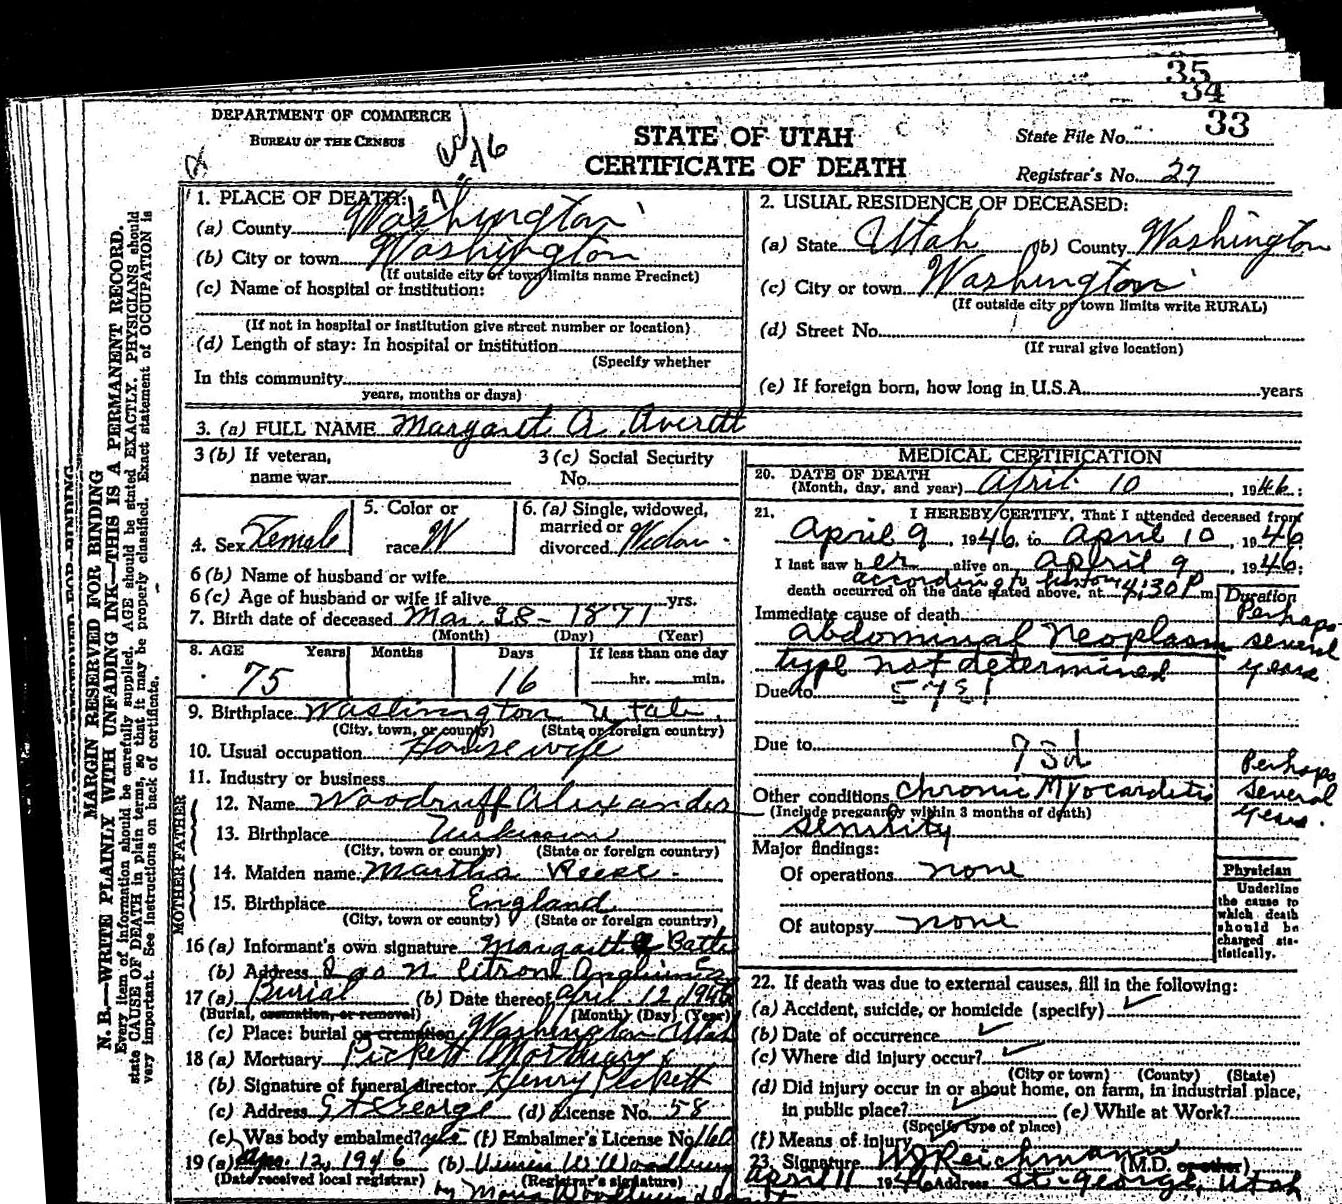 35
34
33
DEPARTMENT OF COMMERCE
BUREAU OF THE CENSUS
STATE OF UTAH
CERTIFICATE OF DEATH
State File No.
Registrar's No. 27
MARGIN RESERVED FOR BINDING
N. B.—WRITE PLAINLY WITH UNFADING INK—THIS IS A PERMANENT RECORD.
Every item of information should be carefully supplied. AGE should be stated EXACTLY. PHYSICIANS should
state CAUSE OF DEATH in plain terms, so that it may be properly classified. Exact statement of OCCUPATION is
very important. See instructions on back of certificate.
1. PLACE OF DEATH:
(a) County Washington
(b) City or town Washington
(If outside city or town limits name Precinct)
(c) Name of hospital or institution:
(If not in hospital or institution give street number or location)
(d) Length of stay: In hospital or institution
(Specify whether
In this community
years, months or days)
2. USUAL RESIDENCE OF DECEASED:
(a) State Utah (b) County Washington
(c) City or town Washington
(If outside city or town limits write RURAL)
(d) Street No.
(If rural give location)
(e) If foreign born, how long in U.S.A. years
3. (a) FULL NAME Margaret A. Averett
3 (b) If veteran,
name war
3 (c) Social Security
No.
4. Sex Female
5. Color or
race W
6. (a) Single, widowed,
married or
divorced Widow
6 (b) Name of husband or wife
6 (c) Age of husband or wife if alive yrs.
7. Birth date of deceased Mar. 28 - 1871
(Month) (Day) (Year)
8. AGE Years Months Days If less than one day
75 16 hr. min.
9. Birthplace Washington Utah
(City, town, or county) (State or foreign country)
10. Usual occupation Housewife
11. Industry or business
FATHER
12. Name Woodruff Alexander
13. Birthplace Unknown
(City, town or county) (State or foreign country)
MOTHER
14. Maiden name Martha Reese
15. Birthplace England
(City, town or county) (State or foreign country)
16 (a) Informant's own signature Margaret
(b) Address N. Citron
17 (a) Burial (b) Date thereof April 12, 1946
(Burial, cremation, or removal) (Month) (Day) (Year)
(c) Place: burial or cremation Washington Utah
18 (a) Mortuary Pickett Mortuary
(b) Signature of funeral director Henry Pickett
(c) Address St George (d) License No. 58
(e) Was body embalmed? yes (f) Embalmer's License No. 160
19 (a) Apr. 12, 1946 (b) W Woodbury
(Date received local registrar) (Registrar's signature)
by Woodbury
MEDICAL CERTIFICATION
20. DATE OF DEATH
(Month, day, and year) April 10, 1946
21. I HEREBY CERTIFY, That I attended deceased from
April 9, 1946, to April 10, 1946
I last saw her alive on April 9, 1946;
according to history
death occurred on the date stated above, at 4:30 P m.
Duration
Immediate cause of death
Abdominal Neoplasm
type not determined
Perhaps
several
years
Due to
Due to
Other conditions Chronic Myocarditis
(Include pregnancy within 3 months of death)
Senility
Perhaps
several
years.
Major findings:
Of operations none
Of autopsy none
Physician
Underline
the cause to
which death
should be
charged sta-
tistically.
22. If death was due to external causes, fill in the following:
(a) Accident, suicide, or homicide (specify)
(b) Date of occurrence
(c) Where did injury occur?
(City or town) (County) (State)
(d) Did injury occur in or about home, on farm, in industrial place,
in public place? (e) While at Work?
(Specify type of place)
(f) Means of injury
23. Signature Reichmann (M.D. or other)
April 11 1946 Address St. George, Utah